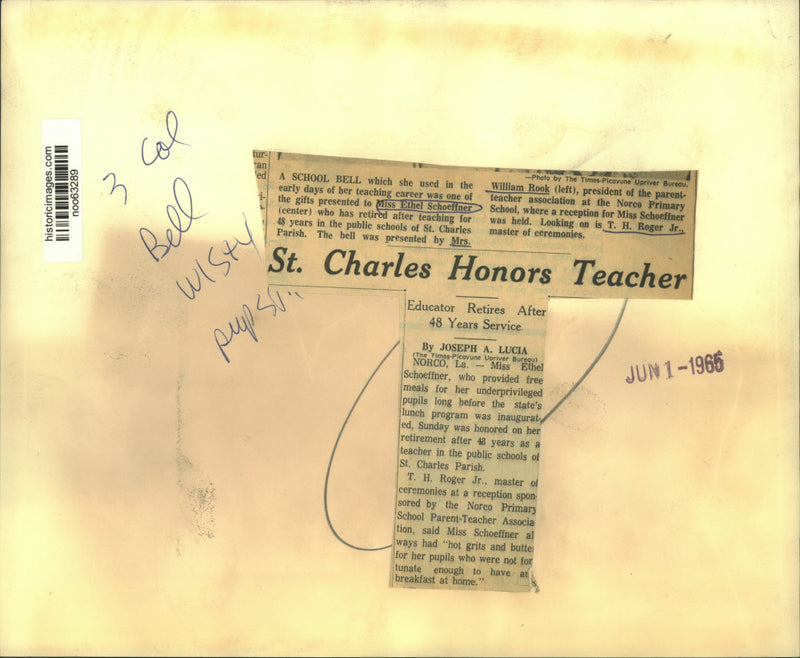 historicimages.com
noo63289
3 Col
Bell
A SCHOOL BELL which she used in the
early days of her teaching career was one of
the gifts presented to Miss Ethel Schoeffner
(center) who has retired after teaching for
48 years in the public schools of St. Charles
Parish. The bell was presented by Mrs.
—Photo by The Times-Picayune Upriver Bureau.
William Rook (left), president of the parent-
teacher association at the Norco Primary
School, where a reception for Miss Schoeffner
was held. Looking on is T. H. Roger Jr.,
master of ceremonies.
St. Charles Honors Teacher
Educator Retires After
48 Years Service
By JOSEPH A. LUCIA
(The Times-Picayune Upriver Bureau)
NORCO, La. — Miss Ethel
Schoeffner, who provided free
meals for her underprivileged
pupils long before the state's
lunch program was inaugurat-
ed, Sunday was honored on her
retirement after 48 years as a
teacher in the public schools of
St. Charles Parish.
T. H. Roger Jr., master of
ceremonies at a reception spon-
sored by the Norco Primary
School Parent-Teacher Associa
tion, said Miss Schoeffner al
ways had "hot grits and butte
for her pupils who were not for
tunate enough to have a
breakfast at home."
JUN 1-1965